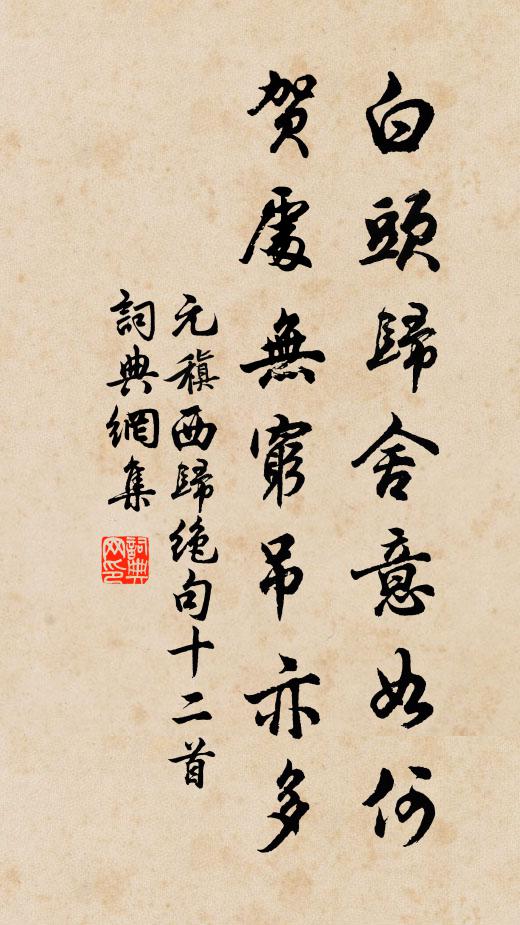 白頭歸舍意如何
賀處無窮吊亦多
元稹西歸絶句十二首
詞典網集
詞典网印